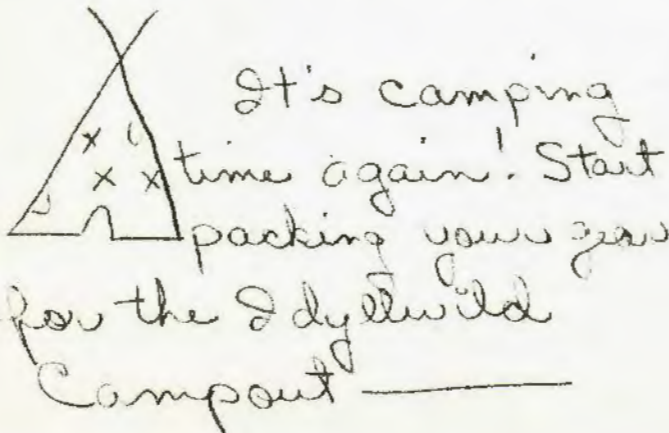 It's camping
time again! Start
packing your gear
for the Idyllwild
Campout